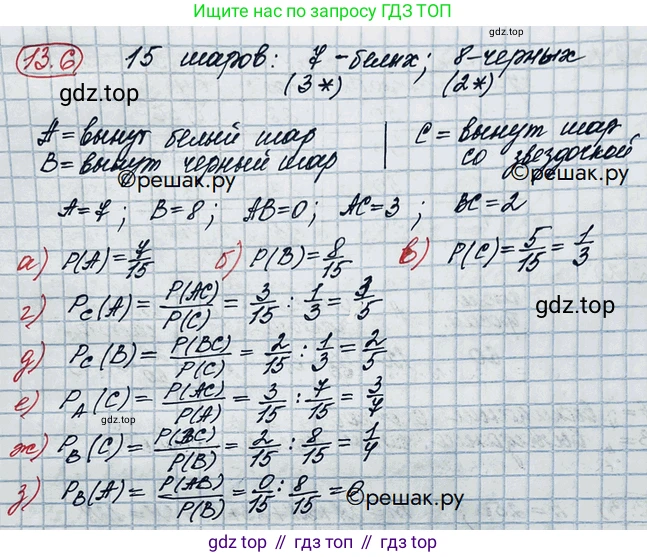 Ищите нас по запросу ГДЗ ТОП
13.6 15 шаров: 7 - белых; 8 - черных
(3*) (2*)
gdz.top
A = вынут белый шар | C = вынут шар
B = вынут черный шар | со звездочкой
©решак.ру
©решак.ру
A=7; B=8; AB=0; AC=3; BC=2
а) P(A)=7/15 б) P(B)=8/15 в) P(C)=5/15=1/3
г) P_C(A)=P(AC)/P(C)=3/15:1/3=3/5
gdz.top
д) P_C(B)=P(BC)/P(C)=2/15:1/3=2/5
е) P_A(C)=P(AC)/P(A)=3/15:7/15=3/7
gdz.top
ж) P_B(C)=P(BC)/P(B)=2/15:8/15=1/4
з) P_B(A)=P(AB)/P(B)=0/15:8/15=0
©решак.ру
gdz.top // gdz.top // gdz.top